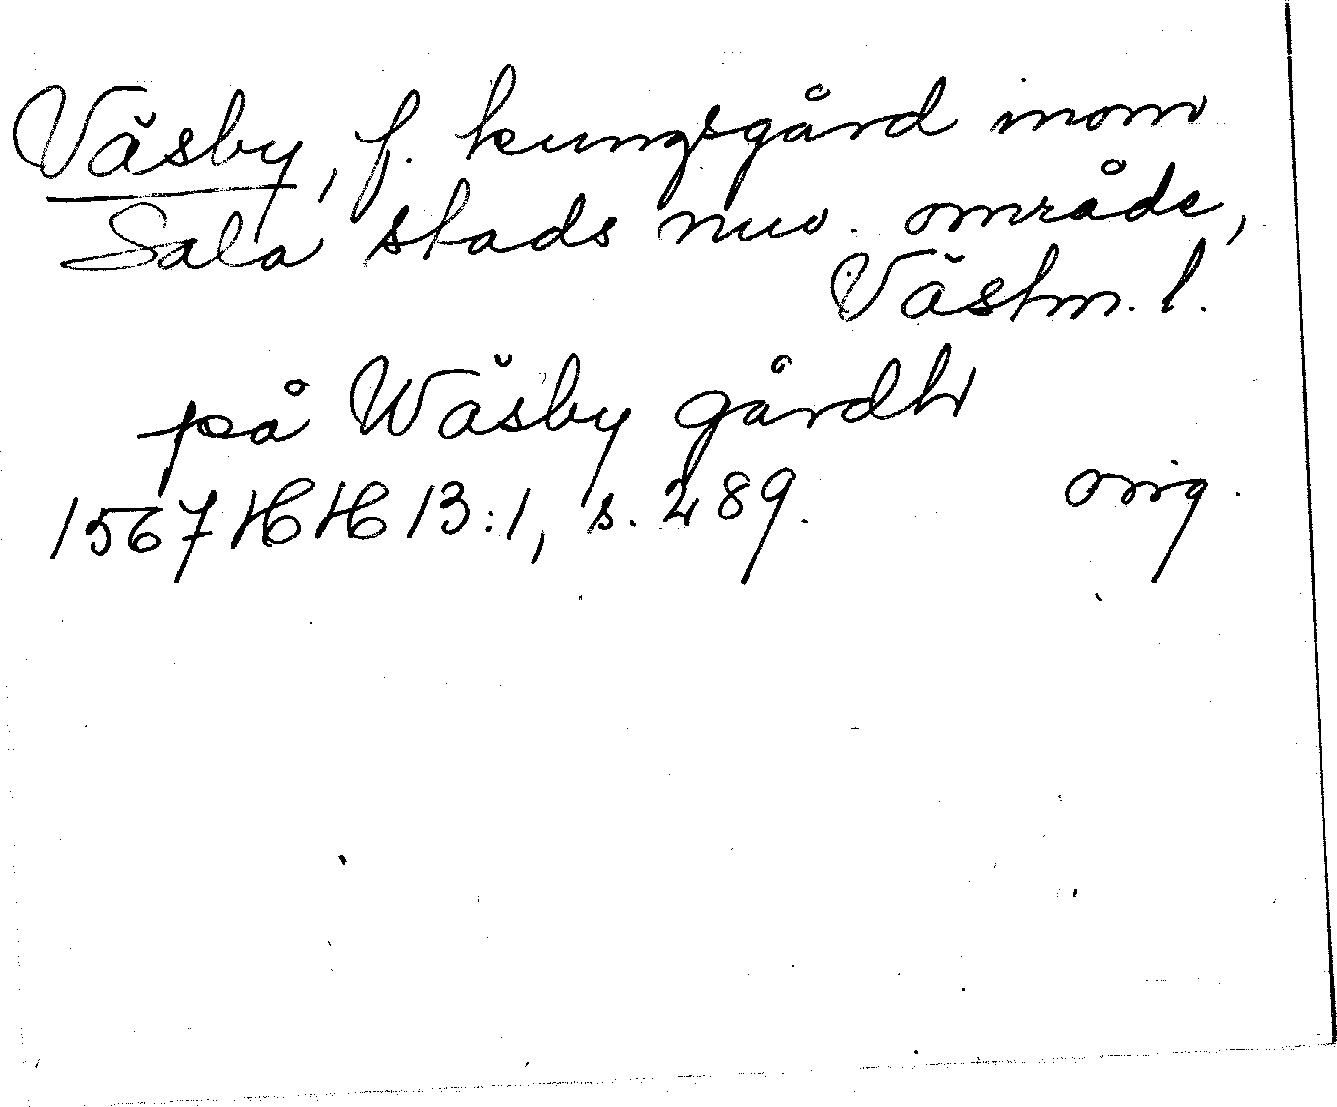 Väsby, f. kungsgård inom
Sala stads nuv. område,
Västm. l.
på Wäsby gårdh
1567 HH 13:1, s. 289. orig.